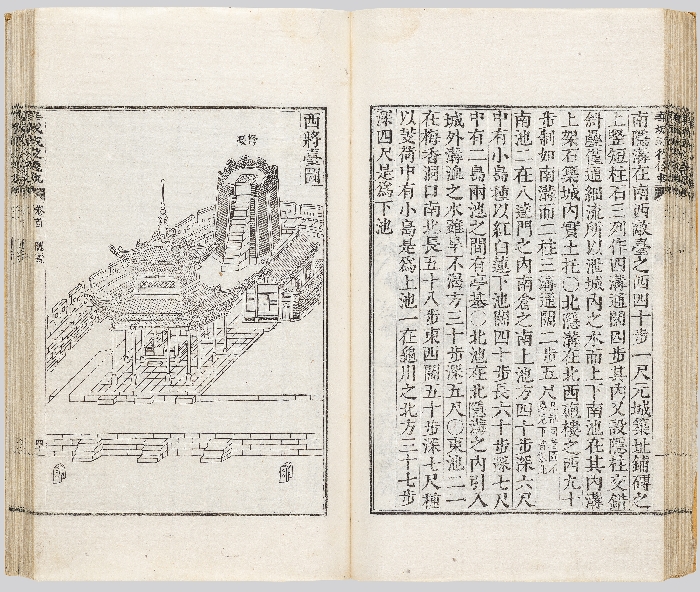 南隱溝在南西敵臺之西四十步一尺元城築址鋪磚之
上竪短柱石三列作四溝通闊四步其內又設隱柱交錯
斜疊僅通細流所以泄城內之水而上下南池在其內溝
上架石築城內實土花○北隱溝在北西砲樓之西九十
步制如南溝而二柱三溝通闊二步五尺
南池二在八達門之內南倉之南上池方四十步深六尺
中有小島種以紅白蓮下池闊四十步長六十步深七尺
中有二島兩池之間有亭基○北池在北隱溝之內引入
城外溝漁之水雖旱不渴方三十步深五尺○東池二一
在梅香洞口南北長五十八步東西闊五十步深七尺種
以芰荷中有小島是爲上池一在龜川之北方三十七步
深四尺是爲下池
西將臺圖
卷首